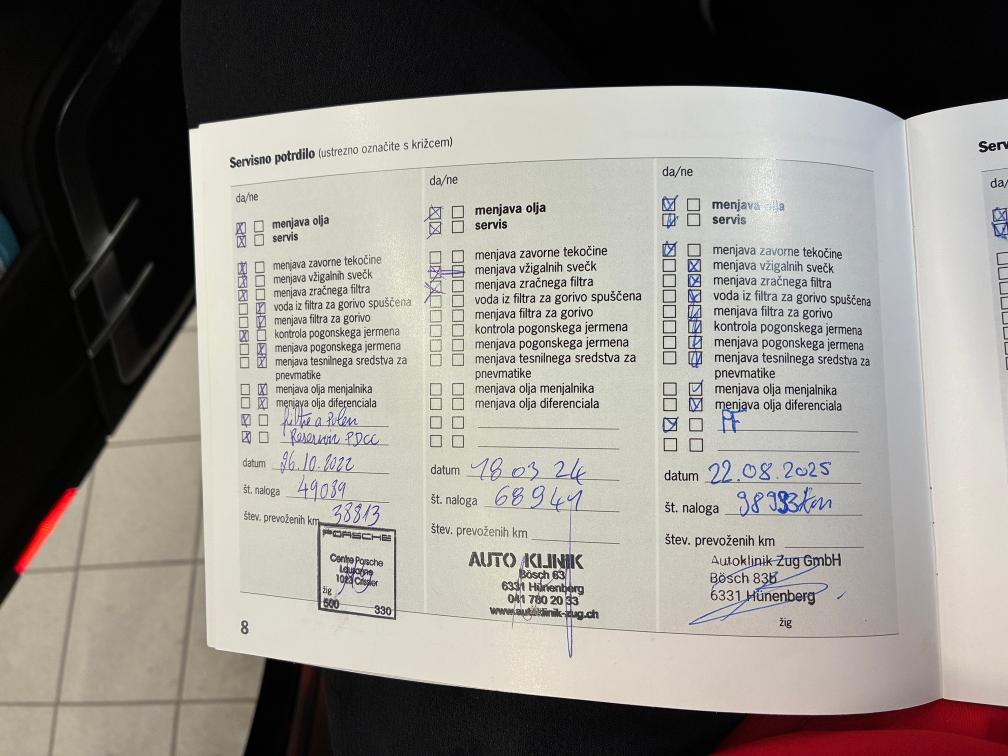 Servisno potrdilo (ustrezno označite s križcem)
da/ne
menjava olja
servis
menjava zavorne tekočine
menjava vžigalnih svečk
menjava zračnega filtra
voda iz filtra za gorivo spuščena
menjava filtra za gorivo
kontrola pogonskega jermena
menjava pogonskega jermena
menjava tesnilnega sredstva za
pnevmatike
menjava olja menjalnika
menjava olja diferenciala
filtre a Polen
Reservoir PDCC
datum 26.10.2022
št. naloga 49039
štev. prevoženih km 38813
PORSCHE
Centre Porsche
Lausanne
1023 Crissier
žig
500 330
8
da/ne
menjava olja
servis
menjava zavorne tekočine
menjava vžigalnih svečk
menjava zračnega filtra
voda iz filtra za gorivo spuščena
menjava filtra za gorivo
kontrola pogonskega jermena
menjava pogonskega jermena
menjava tesnilnega sredstva za
pnevmatike
menjava olja menjalnika
menjava olja diferenciala
datum 18 03 24
št. naloga 68941
štev. prevoženih km
AUTO KLINIK
Bösch 83
6331 Hünenberg
041 780 20 33
www.autoklinik-zug.ch
da/ne
menjava olja
servis
menjava zavorne tekočine
menjava vžigalnih svečk
menjava zračnega filtra
voda iz filtra za gorivo spuščena
menjava filtra za gorivo
kontrola pogonskega jermena
menjava pogonskega jermena
menjava tesnilnega sredstva za
pnevmatike
menjava olja menjalnika
menjava olja diferenciala
PF
datum 22.08.2025
št. naloga 98993km
štev. prevoženih km
Autoklinik Zug GmbH
Bösch 83b
6331 Hünenberg
žig